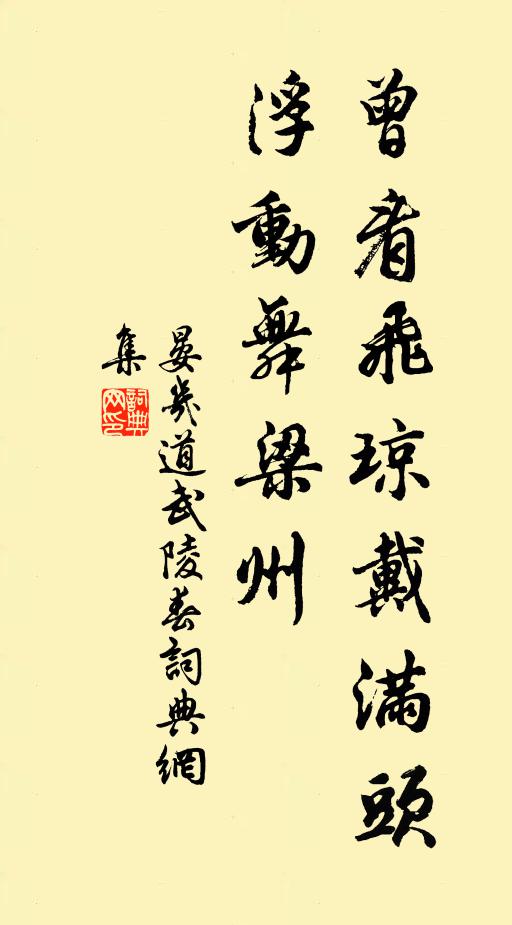 曾看飛瓊戴滿頭
浮動舞梁州
晏幾道武陵春詞典網
集
詞典
网印